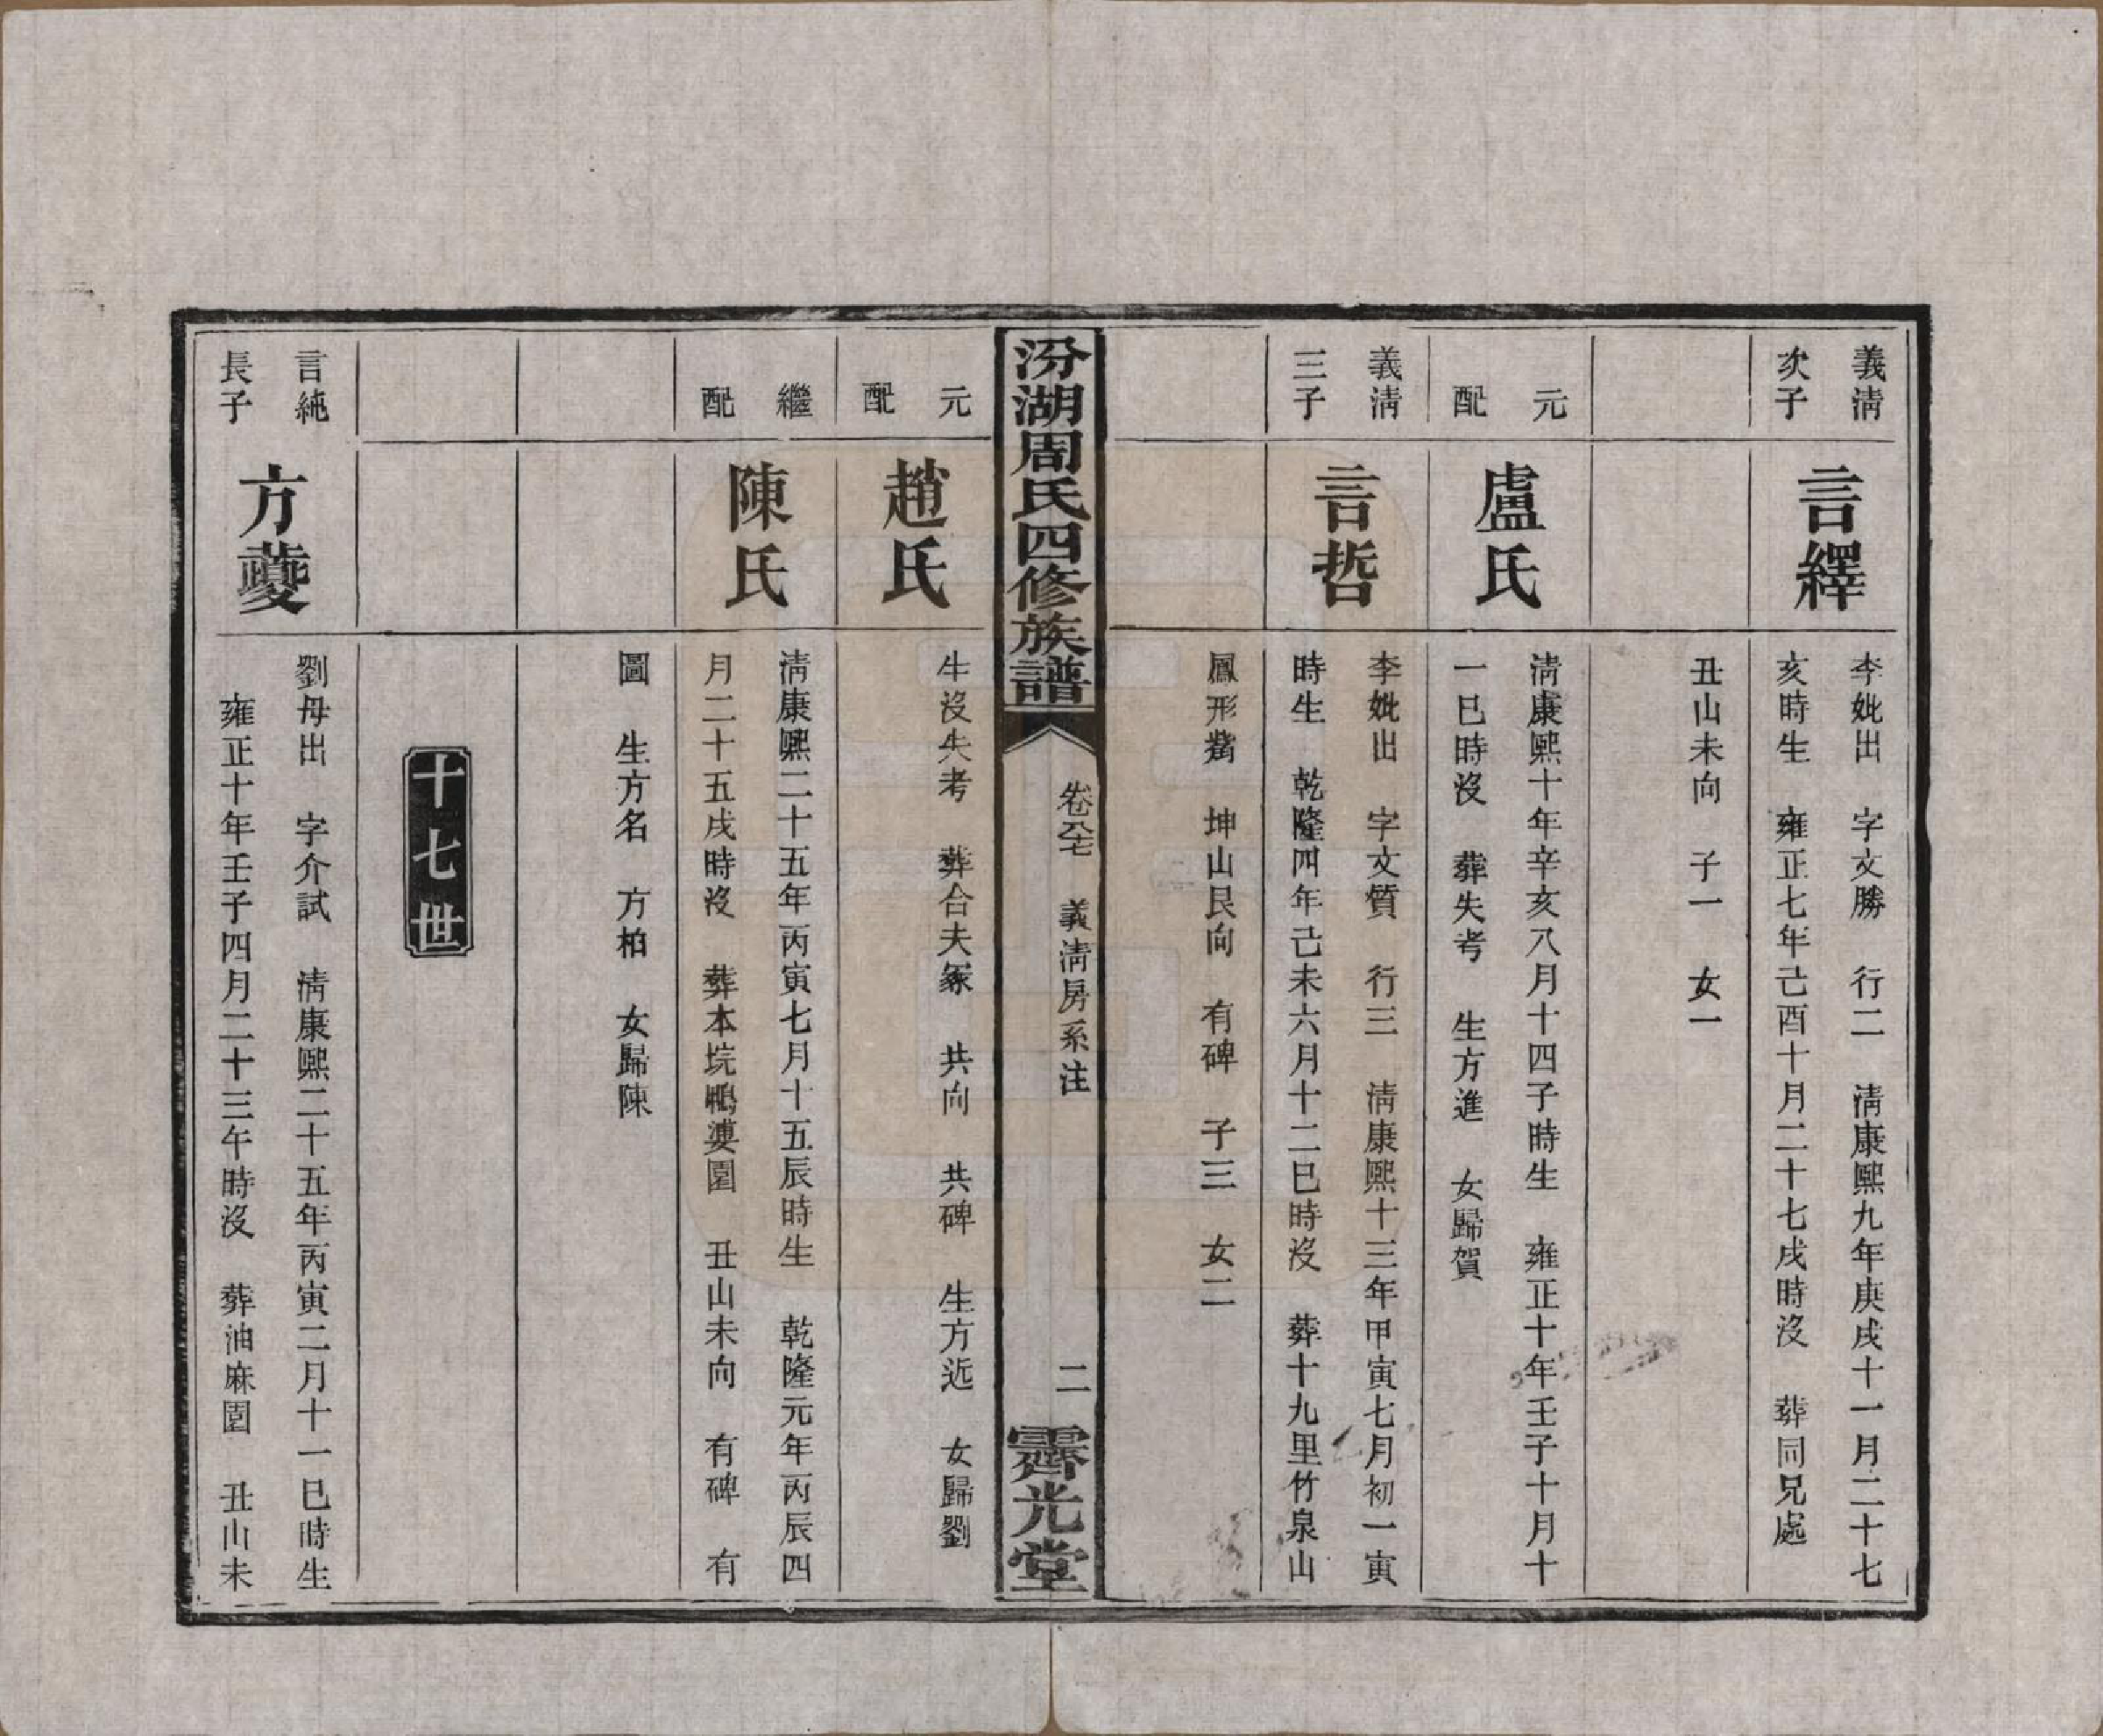 義淸
次子
言繹
李妣出　字文勝　行二　淸康熙九年庚戌十一月二十七
亥時生　雍正七年己酉十月二十七戌時沒　葬同兄處
丑山未向　子一　女一
元
配
盧氏
淸康熙十年辛亥八月十四子時生　雍正十年壬子十月十
一巳時沒　葬失考　生方進　女歸賀
義淸
三子
言哲
李妣出　字文質　行三　淸康熙十三年甲寅七月初一寅
時生　乾隆四年己未六月十二巳時沒　葬十九里竹泉山
鳳形觜　坤山艮向　有碑　子三　女二
汾湖周氏四修族譜
卷　義淸房系注
二
霽光堂
元
配
趙氏
生沒失考　葬合夫冢　共向　共碑　生方近　女歸劉
繼
配
陳氏
淸康熙二十五年丙寅七月十五辰時生　乾隆元年丙辰四
月二十五戌時沒　葬本垸鴨婆園　丑山未向　有碑　有
圖　生方名　方柏　女歸陳
十七世
言純
長子
方夔
劉母出　字介試　淸康熙二十五年丙寅二月十一巳時生
雍正十年壬子四月二十三午時沒　葬油麻園　丑山未